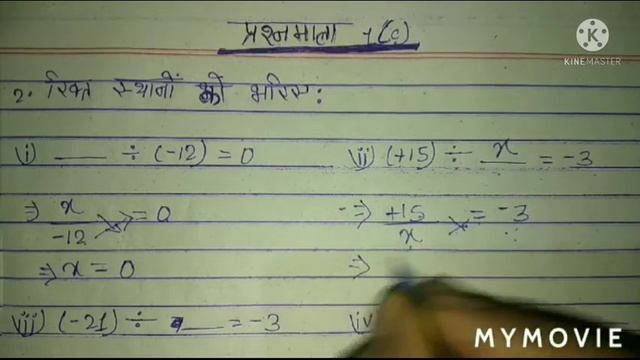 प्रश्नमाला 1(c)
KINEMASTER
2. रिक्त स्थानों को भरिए:
i) ___ ÷ (-12) = 0
ii) (+15) ÷ x = -3
⇒ x/-12 = 0
⇒ +15/x = -3
⇒ x = 0
⇒
iii) (-21) ÷ ___ = -3
iv
MYMOVIE